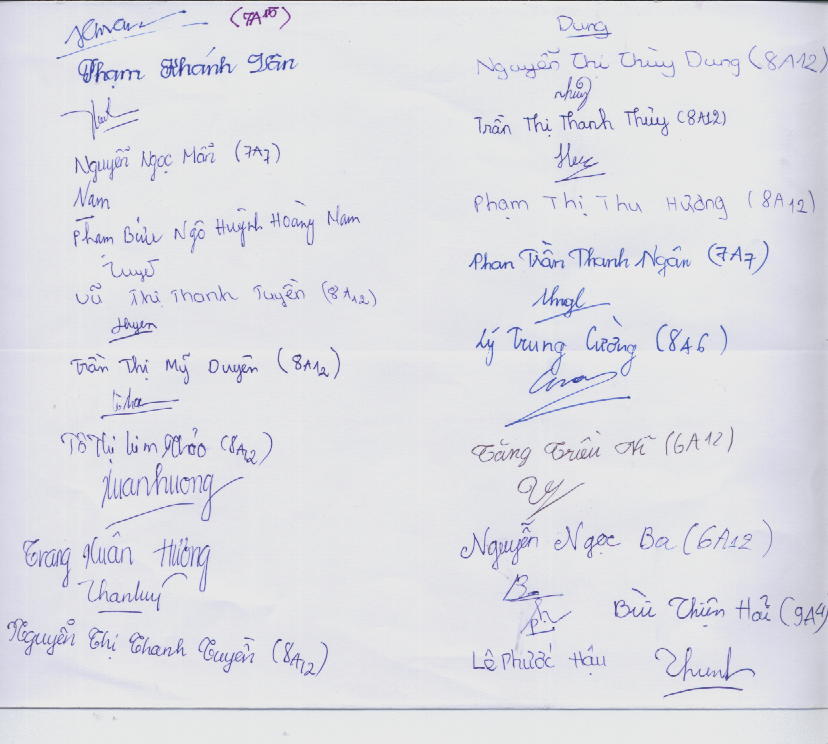 (7A15)
Phạm Khánh Vân
Nguyễn Ngọc Mẫn (7A7)
Nam
Phạm Bửu Ngô Huỳnh Hoàng Nam
Tuyề
Vũ Thị Thanh Tuyền (8A12)
Duyen
Trần Thị Mỹ Duyên (8A12)
Tô Thị Kim Thảo (8A12)
Xuanhuong
Trang Xuân Hương
Nguyễn Thị Thanh Tuyền (8A12)
Dung
Nguyễn Thị Thùy Dung (8A12)
Trần Thị Thanh Thủy (8A12)
Phạm Thị Thu Hương (8A12)
Phan Trần Thanh Ngân (7A7)
Lý Trung Cường (8A6)
Tăng Triều Vĩ (6A12)
Nguyễn Ngọc Ba (6A12)
Ba
Bùi Thiện Hải (9A4)
Lê Phước Hậu